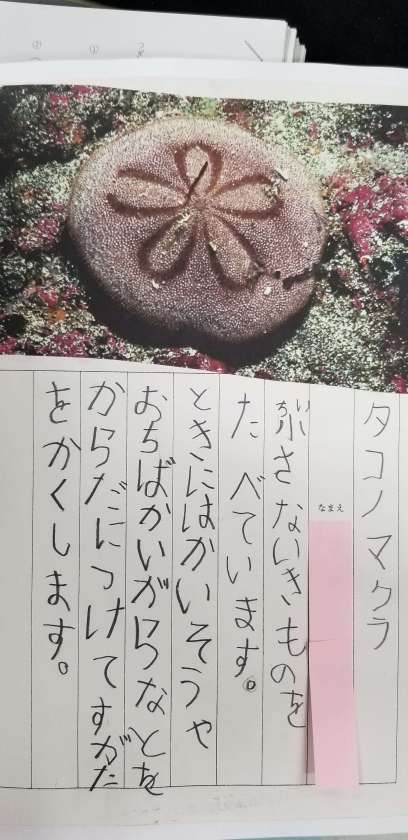 タコノマクラ
なまえ
小さないきものを
たべています。
ときにはかいそうや
おちばかいがらなとを
からだにつけてすがた
をかくします。